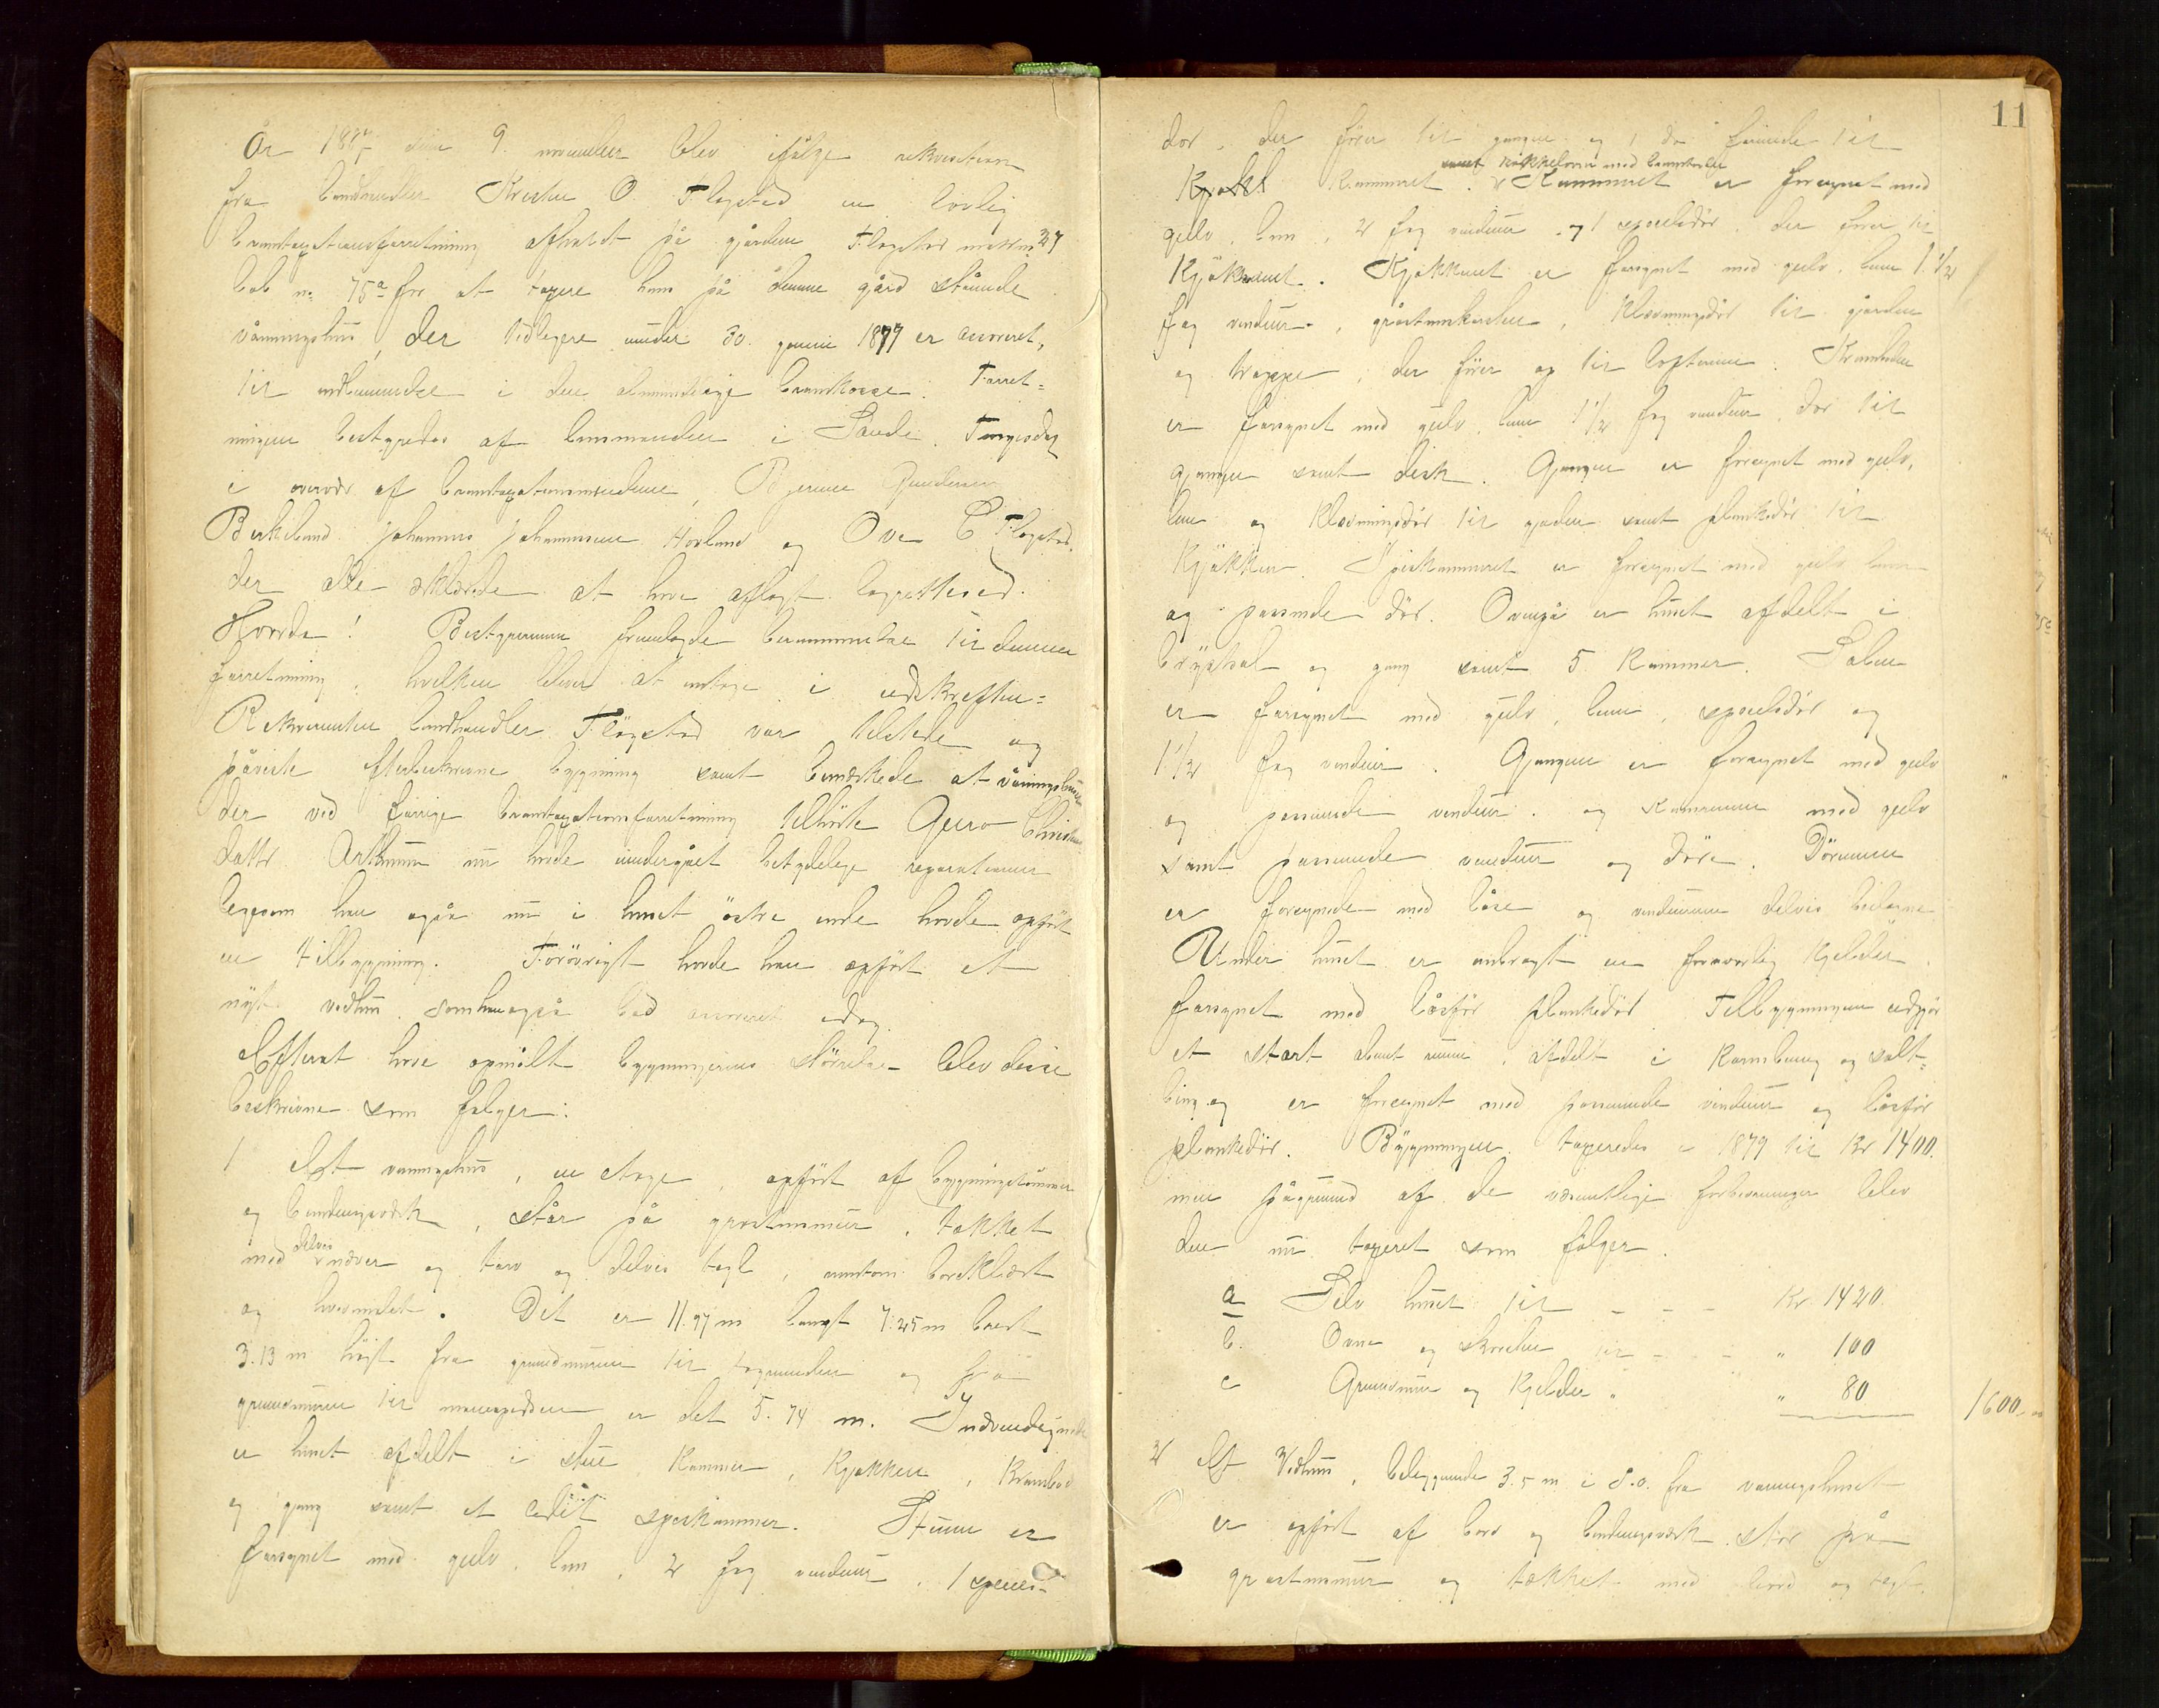 År 1887 den 9. november blev ifølge rekvisition
fra landhandler Kristen O. Fløgstad en lovlig
branntaxationsforretning afholdt på gården Fløgstad matrn: 27
løb no 75a for at taxere hans på denne gård stående
våningshus, der tidligere under 30. 1879 er assureret,
til indlemmelse i den almindelige brankasse. Forret=
ningen bestyredes af lensmanden i Sande.
i overvær af branntaxationsmændene,
Birkeland Johannes Johannesen Hovland og Ove C. Fløgstad,
der alle erklærede at have aflagt lagrettesed.
Hvorda! Bestyreren fremlagde berammelse til denne
forretning, hvilken bliver at indtage i udskriften=
Rekvirenten landhandler Fløgstad var tilstede og
påviste efterbeskrevne bygning samt bemærkede at våningshuset
der ved forrige branntaxationsforretning tilhørte Guro Christens
datter nu havde undergået betydelige reparationer
ligesom han også nu i huset østre ende havde opført
en tilbygning. Forøvrigt havde han opført et
nyt vedhus som han også bad assureret idag.
Efterat have opmålt bygningernes størrelse blev disse
beskrevne som følger:
1 Et vaaningshus, en etage, opført af bygningstømmer
og bindingsværk, står på gråstensmur, tækket
med delvis næver og tørv og delvis tagl, rundtom bordklædt
og hvidmalet. Det er 11.97 m langt 7.25 m bredt
3.13 m høit fra grundmuren til tagrenden og fra
grundmuren til mønespidsen er det 5.74 m. Indvendig
er huset afdelt i stue kammer, kjøkken, krambod
og gang samt et lidet speiskammer. Stuen er
forsynet med gulv, lem, 2 fag vinduer, 1 speiel-
11
dør, der fører til gangen og 1 do førende til
Kammeret. samt kakkelovn med
Kammeret er forsynet med
gulv, lem, 2 fag vinduer, 1 speieldør, der fører til
Kjøkkenet. Kjøkkenet er forsynet med gulv, lem 1 1/2
fag vinduer, gråstenskorsten, klædningsdør til gården
og trappe, der fører op til lofterne. Kramboden
er forsynet med gulv, lem 1 1/2 fag vinduer, dør til
gangen samt disk. Gangen er forsynet med gulv,
lem og klædningsdør til gården samt plankedør til
kjøkken. Speiskammeret er forsynet med gulv lem
og passende dør. Ovenpå er huset afdelt i
sal og gang samt 5 kammer. Salen
er forsynet med gulv, lem, speieldør og
1 1/2 fag vinduer. Gangen er forsynet med gulv
og passende vinduer og kammerne med gulv
samt passende vinduer og døre. Dørene
er forsynede med låse og vinduerne delvis
Under huset er anbragt en forsvarlig kjelder
forsynet med låsfør plankedør. Tilbygningen udgjør
et stort rum, afdelt i kornbing og salt=
bing og er forsynet med passende vinduer og låsfør
plankedør. Bygningen taxeredes i 1879 til kr 1400.
men pågrund af de væsentlige forbedringer blev
den nu taxeret som følger.
a Selv huset til - - - kr. 1420.
b. Ovne og skorsten til - - - " 100
c Grundmur og kjelder " " 80
1600.00
2 Et Vedhus, beliggende 3.5 m i S.O. fra vaaningshuset
er opført af bord og bindingsværk står på
gråstensmur og tækket med bord og tagl.